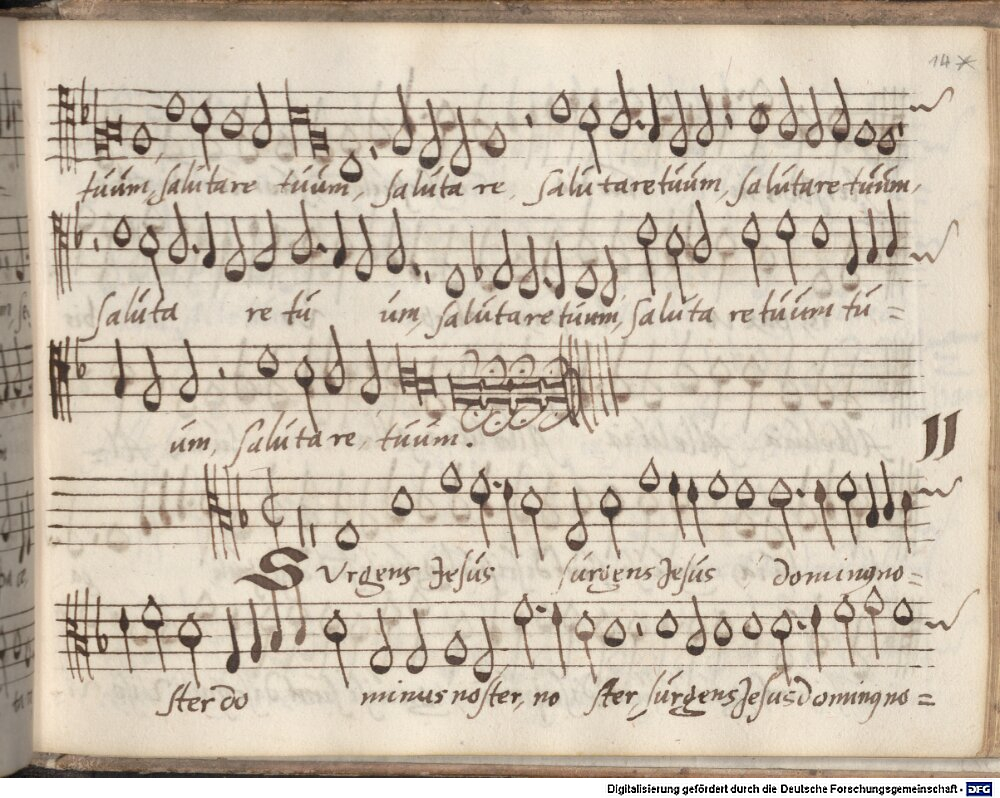 14
tuum, salutare tuum, saluta re, salutaretuum, salutaretuum,
Saluta re tu um, salutaretuum, saluta retuum tu =
um, salutare, tuum.
II
SUrgens Jesus surgens Jesus dominꝯno=
ster do minus noster, no ster, surgens Jesus dominꝯno=
Digitalisierung gefördert durch die Deutsche Forschungsgemeinschaft - DFG